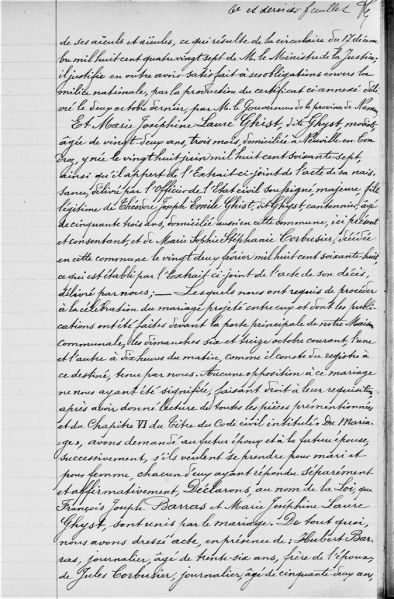 6e et dernier feuillet
de ses aïeuls et aïeules, ce qui résulte de la circulaire du 12 décem
bre mil huit cent quatre vingt sept de M. le Ministre de la Justice;
il justifie en outre avoir satisfait à ses obligations envers la
milice nationale, par la production du certificat ci annexé déli
vré le deux octobre dernier, par M. le Gouverneur de la province de Namur
Et Marie Joséphine Laure Ghist, dite Ghyst, modiste,
âgée de vingt deux ans, trois mois, domiciliée à Neuville en Con
droz, y née le vingt huit juin mil huit cent soixante sept,
ainsi qu'il appert de l'Extrait ci-joint de l'acte de sa nais
sance, délivré par l'Officier de l'Etat civil soussigné, majeure, fille
légitime de Théodore Joseph Emile Ghist, dit Ghyst, cantonnier, âgé
de cinquante trois ans, domicilié aussi en cette commune, ici présent
et consentant, et de Marie Sophie Stéphanie Corbusier, décédée
en cette commune le vingt deux février mil huit cent soixante huit
ce qui est établi par l'Extrait ci-joint de l'acte de son décès,
délivré par nous; — Lesquels nous ont requis de procéder
à la célébration du mariage projeté entre eux et dont les publi
cations ont été faites devant la porte principale de notre Maison
communale, les dimanches six et treize octobre courant, l'une
et l'autre à dix heures du matin, comme il conste du registre à
ce destiné, tenu par nous. Aucune opposition à ce mariage
ne nous ayant été signifiée, faisant droit à leur réquisition
après avoir donné lecture de toutes les pièces prémentionnées
et du Chapitre VI du Titre du Code civil intitulé: Du Maria-
ge, avons demandé au futur époux et à la future épouse,
successivement, s'ils veulent se prendre pour mari et
pour femme chacun d'eux ayant répondu séparément
et affirmativement, Déclarons, au nom de la Loi, que
François Joseph Barras et Marie Joséphine Laure
Ghyst, sont unis par le mariage. De tout quoi,
nous avons dressé acte, en présence de: Hubert Bar-
ras, journalier, âgé de trente-six ans, frère de l'époux,
de Jules Corbusier, journalier, âgé de cinquante deux ans,